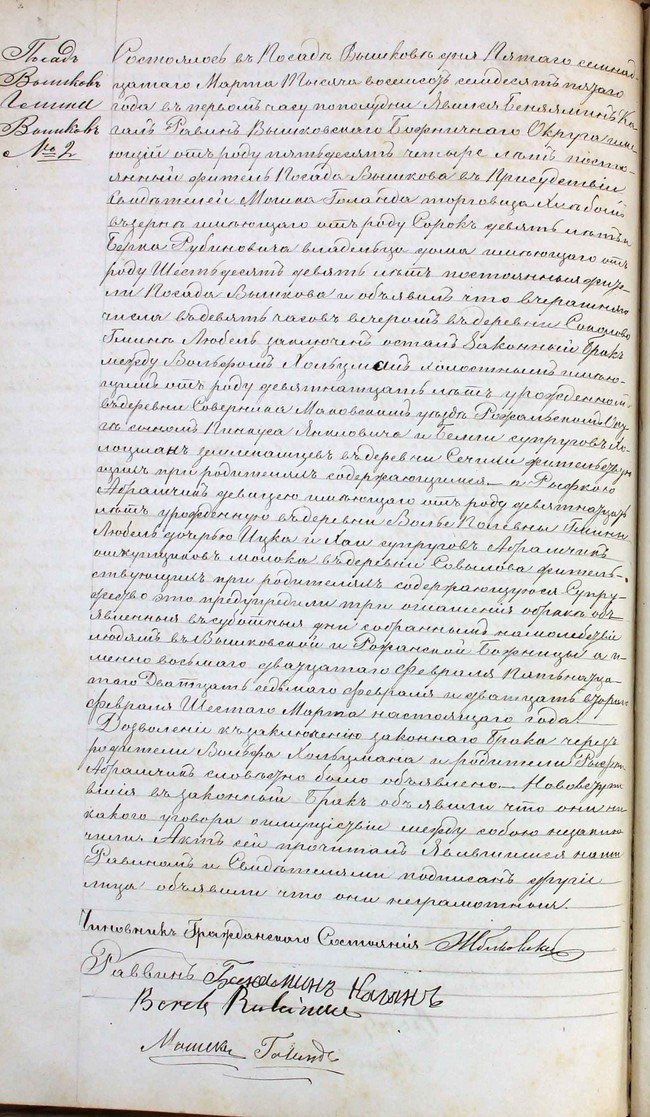 Посадъ
Вышковъ
Гмина
Вышковъ
№ 2
Состоялось въ Посадѣ Вышковѣ дня Пятаго семнад-
цатаго Марта Тысяча восемсотъ семдесятъ пятаго
года въ первомъ часу пополудни Явился Беняяминъ Ка-
ганъ Равинъ Вышковскаго Божничнаго Округа име-
ющій отъ роду пятьдесятъ четыре лѣтъ посто-
янный житель Посада Вышкова въ Присудствіи
Свидѣтелей Мошка Голанда торговца Хлѣбомъ
въ зернѣ имѣющаго отъ роду Сорокъ девять лѣтъ и
Берка Рубиновича владельца дома имѣющаго отъ
роду Шестьдесятъ девять лѣтъ постоянныя жите-
ли Посада Вышкова и объявилъ что вчерашняго
числа въ девять часовъ вечеромъ въ деревни Соволово
Гмины Любель заключенъ осталъ Законный Бракъ
между Вольфомъ Хольцманъ холостымъ имею-
щимъ отъ роду девятнатцать лѣтъ урожденной
въ деревни Маковскимъ уѣздѣ Рожанскомъ
сыномъ Пинкуса Янкловича и супруговъ Хо-
льцманъ въ деревни Сечихи жительству-
щихъ при родителяхъ содержающимся — а Рыфкою
Абрамчикъ девицею имѣющаго отъ роду девятнатцать
лѣтъ урожденную въ деревни Вольке Полевны Гмины
Любель дочерью Ицка и Хаи супруговъ Абрамчикъ
откупщиковъ молока въ деревни Совылова житель-
ствующихъ при родителяхъ содержающуюся Супру-
жество это предупредили три оглашенія обракѣ объ-
явленныя въ суботныя дни собраннымъ на молебствіи
людямъ въ Вышковской и Рожанской Божницы а и-
менно восьмаго двадцатаго февраля Пятьнадца-
таго Дватцать седьмаго февраля и дватцать втораго
февраля Шестаго Марта настоящаго года.
Дозволеніе къ заключенію законнаго Брака чрезъ
родители Вольфа Хольцмана и родители Рыфки
Абрамчикъ словестно было объявлено. Нововступи-
вшія въ законный Бракъ объявили что они ни
какого уговора о имуществіи между собою незаклю
чили. Актъ сей прочитанъ Явившимся нами
Равиномъ и Свидѣтелями подписанъ другіе
лица объявили что они неграмотныя.
Чиновникъ Гражданскаго Состоянія
Раввинъ Беняминъ Каганъ
Berek Rubinow
Мошка Голандъ